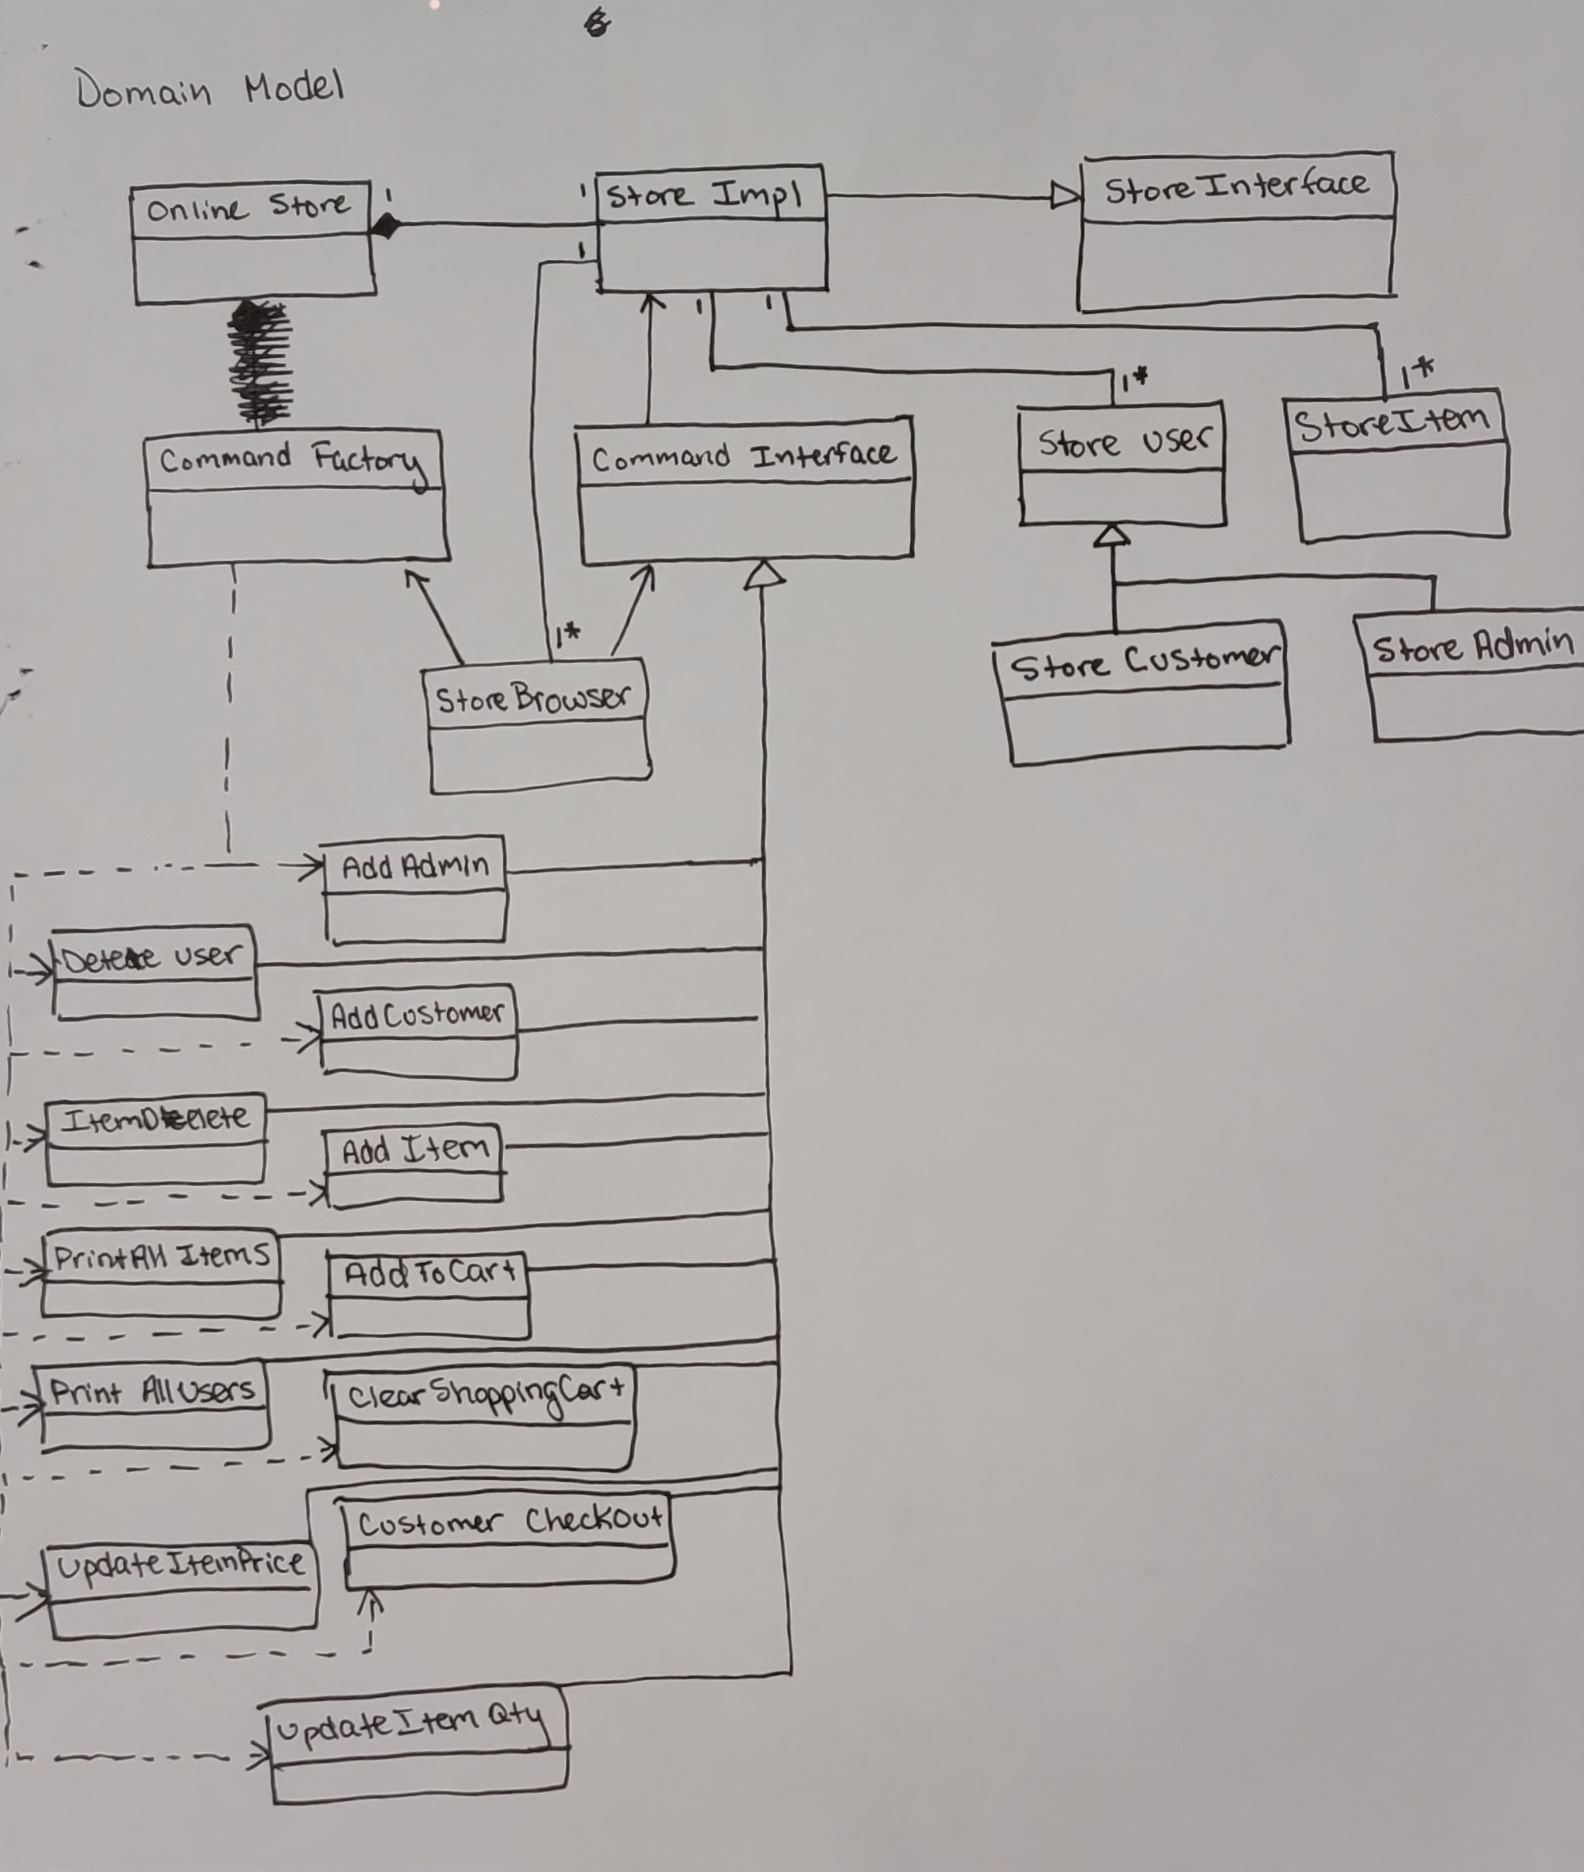 Domain Model
Online Store
1
1
Store Impl
StoreInterface
1
1
1
1*
1*
Command Factory
Command Interface
Store User
StoreItem
1*
StoreBrowser
Store Customer
Store Admin
Add Admin
Delete User
AddCustomer
ItemDelete
Add Item
PrintAll Items
AddToCart
Print AllUsers
ClearShoppingCart
Customer CheckOut
UpdateItemPrice
UpdateItem Qty